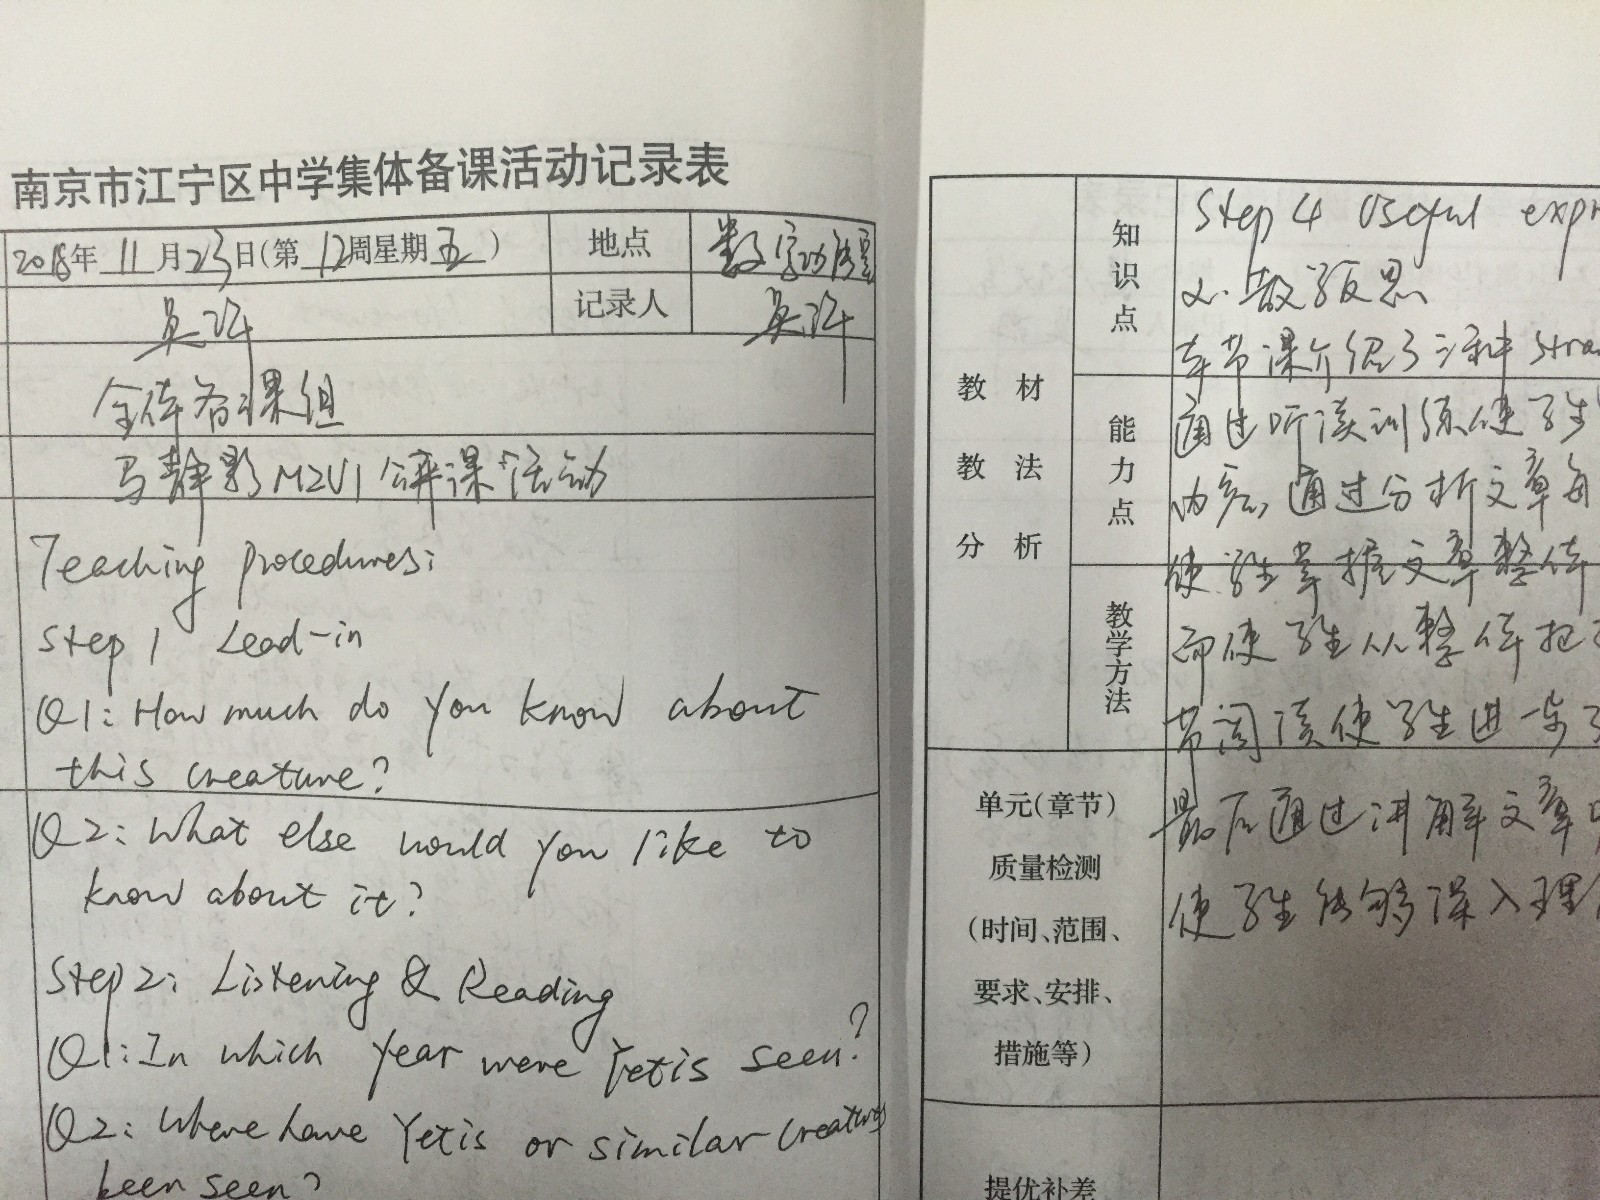 南京市江宁区中学集体备课活动记录表
2018年 11 月 23 日(第 12 周星期 五 )
地点
数字功能室
记录人
全体备课组
马静影 M2U1 公开课活动
Teaching procedures:
Step 1 Lead-in
Q1: How much do you know about
this creature?
Q2: What else would you like to
know about it?
Step 2: Listening & Reading
Q1: In which year were Yetis seen?
Q2: Where have Yetis or similar creatures
been seen?
教材
教法
分析
知识点
能力点
教学方法
Step 4 Useful expr
二、教学反思
本节课介绍了三种 stra
通过听读训练使学生
内容。通过分析文章每
使学生掌握文章整体
而使学生从整体把
节阅读使学生进一步了
最后通过讲解文章中
使学生能够深入理
单元(章节)
质量检测
(时间、范围、
要求、安排、
措施等)
提优补差